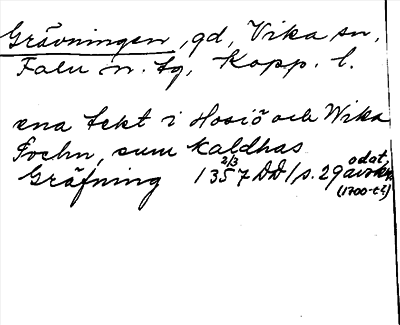 Grävningen, gd, Vika sn,
Falu n. tg, Kopp. l.
ena tekt i Hosiö och Wika
Sochn, sum kaldhas
Gräfning 2/3 1357 DD 1 s. 29 odat, avskr.
(1700-t:s)